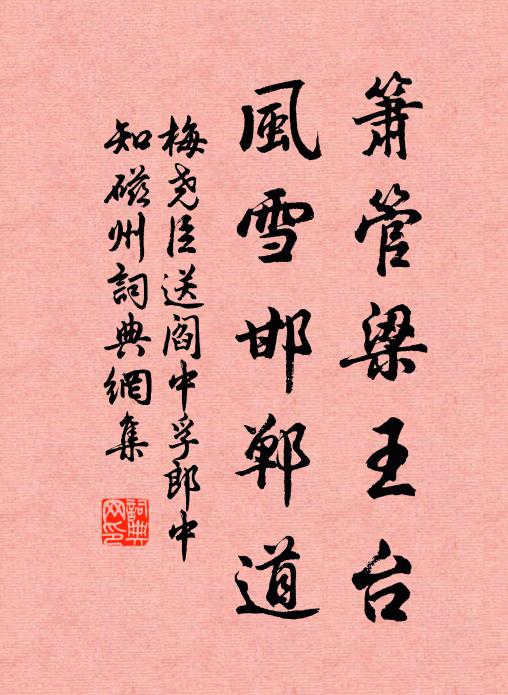 簫管梁王台
風雪邯鄲道
梅堯臣送閻中孚郎中
知磁州詞典網集
詞典
网印